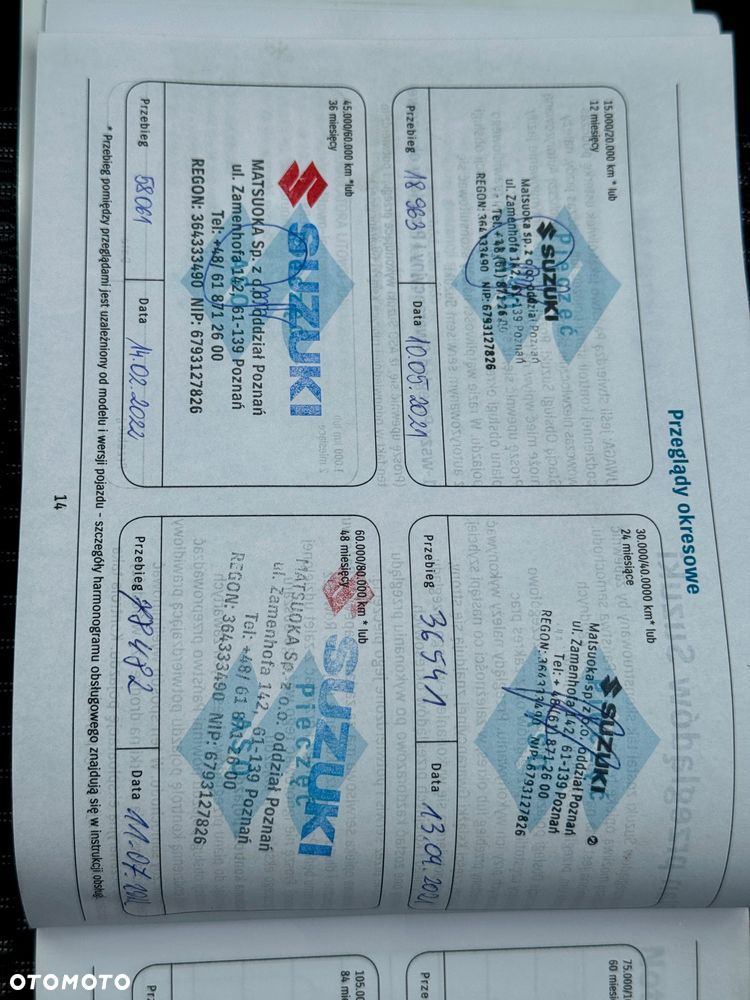 Przeglądy okresowe
15.000/20.000 km * lub
12 miesięcy
Pieczęć
SUZUKI
Matsuoka sp. z o.o. oddział Poznań
ul. Zamenhofa 142, 61-139 Poznań
Tel: +48 (61) 871 26 00
REGON: 364333490 NIP: 6793127826
Przebieg 18 963 Data 10.05.2021
30.000/40.0000 km* lub
24 miesiące
SUZUKI
Matsuoka sp. z o.o. oddział Poznań
ul. Zamenhofa 142, 61-139 Poznań
Tel: + 48 (61) 871 26 00
REGON: 364333490 NIP: 6793127826
Przebieg 36.541 Data 13.09.2021
45.000/60.000 km *lub
36 miesięcy
SUZUKI
MATSUOKA Sp. z o.o. oddział Poznań
ul. Zamenhofa 142, 61-139 Poznań
Tel: +48/ 61 871 26 00
REGON: 364333490 NIP: 6793127826
Przebieg 58061 Data 14.02.2022
60.000/80.000 km * lub
48 miesięcy
SUZUKI
Pieczęć
MATSUOKA Sp. z o.o. oddział Poznań
ul. Zamenhofa 142, 61-139 Poznań
ASO
Tel: +48/ 61 871 26 00
REGON: 364333490 NIP: 6793127826
Przebieg Data
* Przebieg pomiędzy przeglądami jest uzależniony od modelu i wersji pojazdu - szczegóły harmonogramu obsługowego znajdują się w instrukcji obsług
14
75.000/1
60 miesi
Prze
105.00
84 mi
Prze
OTOMOTO